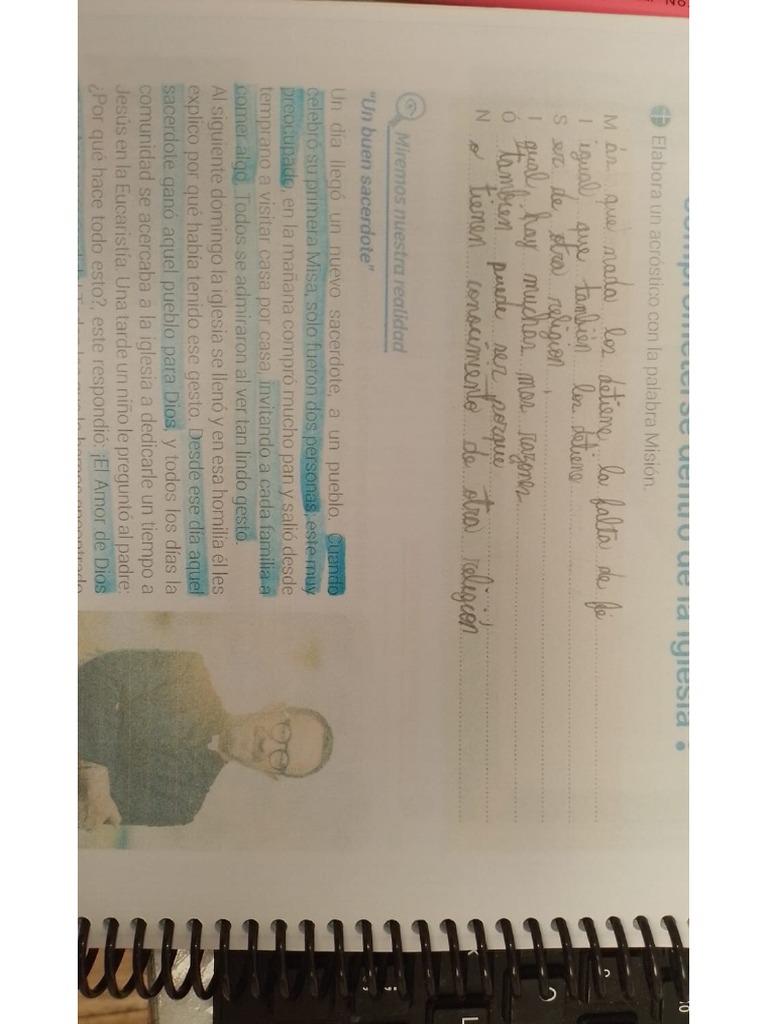 comprometerse dentro de la iglesia
Elabora un acróstico con la palabra Misión.
M ás que nada los detiene la falta de fe
I igual que también los detiene
S er de otra religion
I gual hay muchas mas razones
Ó tambien puede ser porque
N o tienen conocimiento de otra religion
Miremos nuestra realidad
"Un buen sacerdote"
Un día llegó un nuevo sacerdote, a un pueblo. Cuando
celebró su primera Misa, solo fueron dos personas, este muy
preocupado, en la mañana compró mucho pan y salió desde
temprano a visitar casa por casa, invitando a cada familia a
comer algo. Todos se admiraron al ver tan lindo gesto.
Al siguiente domingo la iglesia se llenó y en esa homilia él les
explico por qué había tenido ese gesto. Desde ese día aquel
sacerdote ganó aquel pueblo para Dios y todos los días la
comunidad se acercaba a la iglesia a dedicarle un tiempo a
Jesús en la Eucaristía. Una tarde un niño le preguntó al padre:
¿Por qué hace todo esto?, este respondió: ¡El Amor de Dios